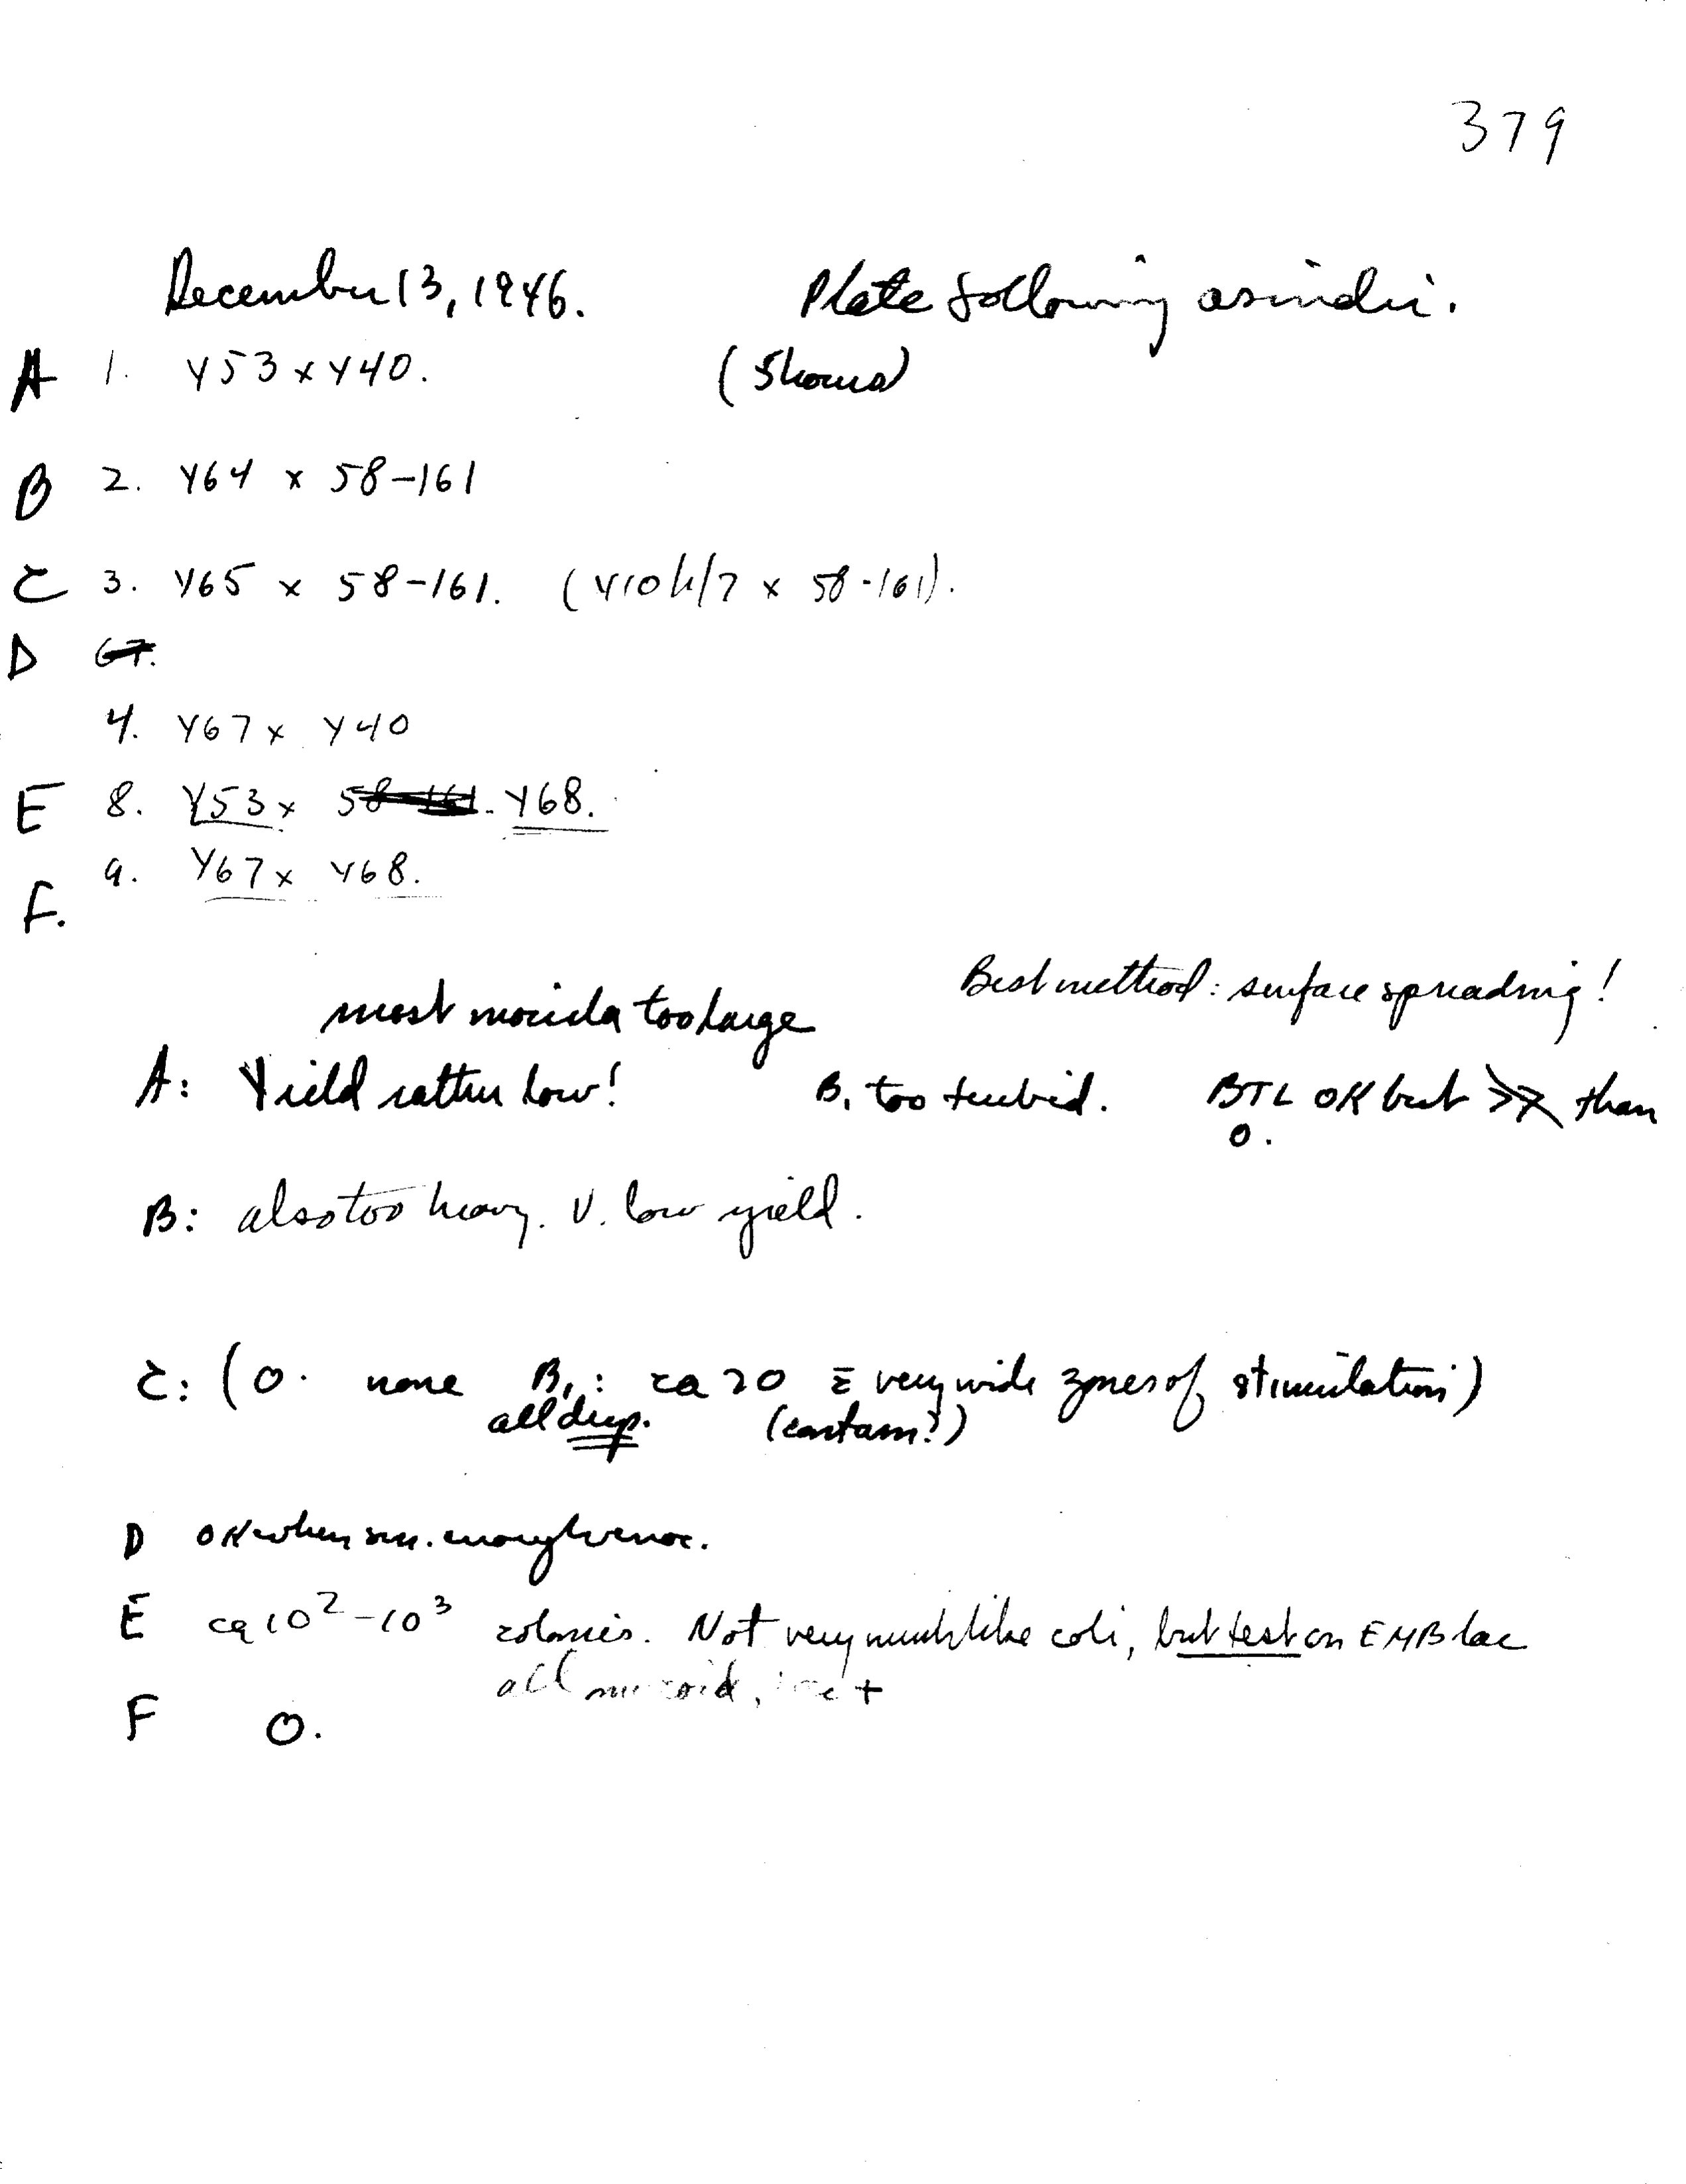 379
December 13, 1946. Plate following as indic.
A 1. Y53 x Y40.
B 2. Y64 x 58-161
C 3. Y65 x 58-161. (Y10 /7 x 58-161).
D 67.
4. Y67 x Y40
E 8. Y53 x 58-161. Y68.
F. 9. Y67 x Y68.
Best method: surface spreading!
most inocula too large
A: Yield rather low! B1 too turbid. BTL OK but >> than
0.
B: also too heavy. V. low yield.
C: (0. none B1: ca 20 c̄ very wide zones of stimulation)
all deep. (contam?)
D OK when enough
E ca 10²-10³ colonies. Not very much like coli, but test on EMB lac
all mucoid, lac +
F 0.